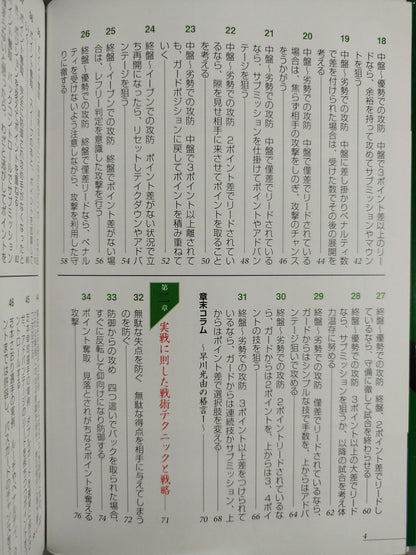 18 中盤〜優勢での攻防 中盤で3ポイント差以上のリー
ドなら、余裕を持って攻めてサブミッションやマウン
トを狙う 42
19 中盤〜劣勢での攻防 中盤に差し掛かりペナルティ数
で差を付けられた場合は、受けた数でその後の展開を
考える 44
20 中盤〜劣勢での攻防 中盤で僅差でリードされている
場合は、焦らず相手の攻撃をしのぎ、攻撃のチャンス
をうかがう 46
21 中盤〜劣勢での攻防 中盤で僅差でリードされている
なら、サブミッションを仕掛けてポイントやアドバン
テージを狙う 48
22 中盤〜劣勢での攻防 2ポイント差でリードされてい
るなら、隙を見せ相手に来させてポイントを取ること
を考える 50
23 中盤〜劣勢での攻防 中盤で3ポイント以上離されて
も、ガードポジションに戻してポイントを積み重ねて
いく 52
24 終盤〜イーブンでの攻防 ポイント差がない状況で立
ち再開になったら、リセットしテイクダウンやアドバ
ンテージを狙う 54
25 終盤〜イーブンでの攻防 終盤でポイント差がない場
合は、レフリー判定を意識した攻撃を行う 56
26 終盤〜優勢での攻防 終盤で僅差リードなら、ペナル
ティを受けないよう注意しながら、攻撃を利用した守
りに徹する 58
27 終盤〜優勢での攻防 終盤、2ポイント差でリードし
ているなら、守備に徹して試合を終わらせる 60
28 終盤〜優勢での攻防 3ポイント以上の大差でリード
なら、サブミッションを狙うか、以降の試合を考え体
力温存に努める 62
29 終盤〜劣勢での攻防 僅差でリードされているなら、
ガードからはシンプルな技で手数を、上からはアドバ
ンテージ狙いで攻める 64
30 終盤〜劣勢での攻防 2ポイントリードされているな
ら、ガードからは2ポイントを、上からは3、4ポイ
ントの技を狙う 66
31 終盤〜劣勢での攻防 3ポイント以上差をつけられて
いるなら、ガードからは連続技かサブミッション、上
からはポイント差で選択肢を変える 68
章末コラム 〜早川光由の格言1〜 70
第二章 実戦に則した戦術テクニックと戦略 71
32 無駄な失点を防ぐ 無駄な得点を相手に与えてしまう
のを防ぐ 72
33 防御からの攻め 四つ這いでバックを取られた場合、
すぐに反転して仰向けになり防御する 74
34 ポイント奪取 見落とされがちな2ポイントを奪える
攻撃 76
4